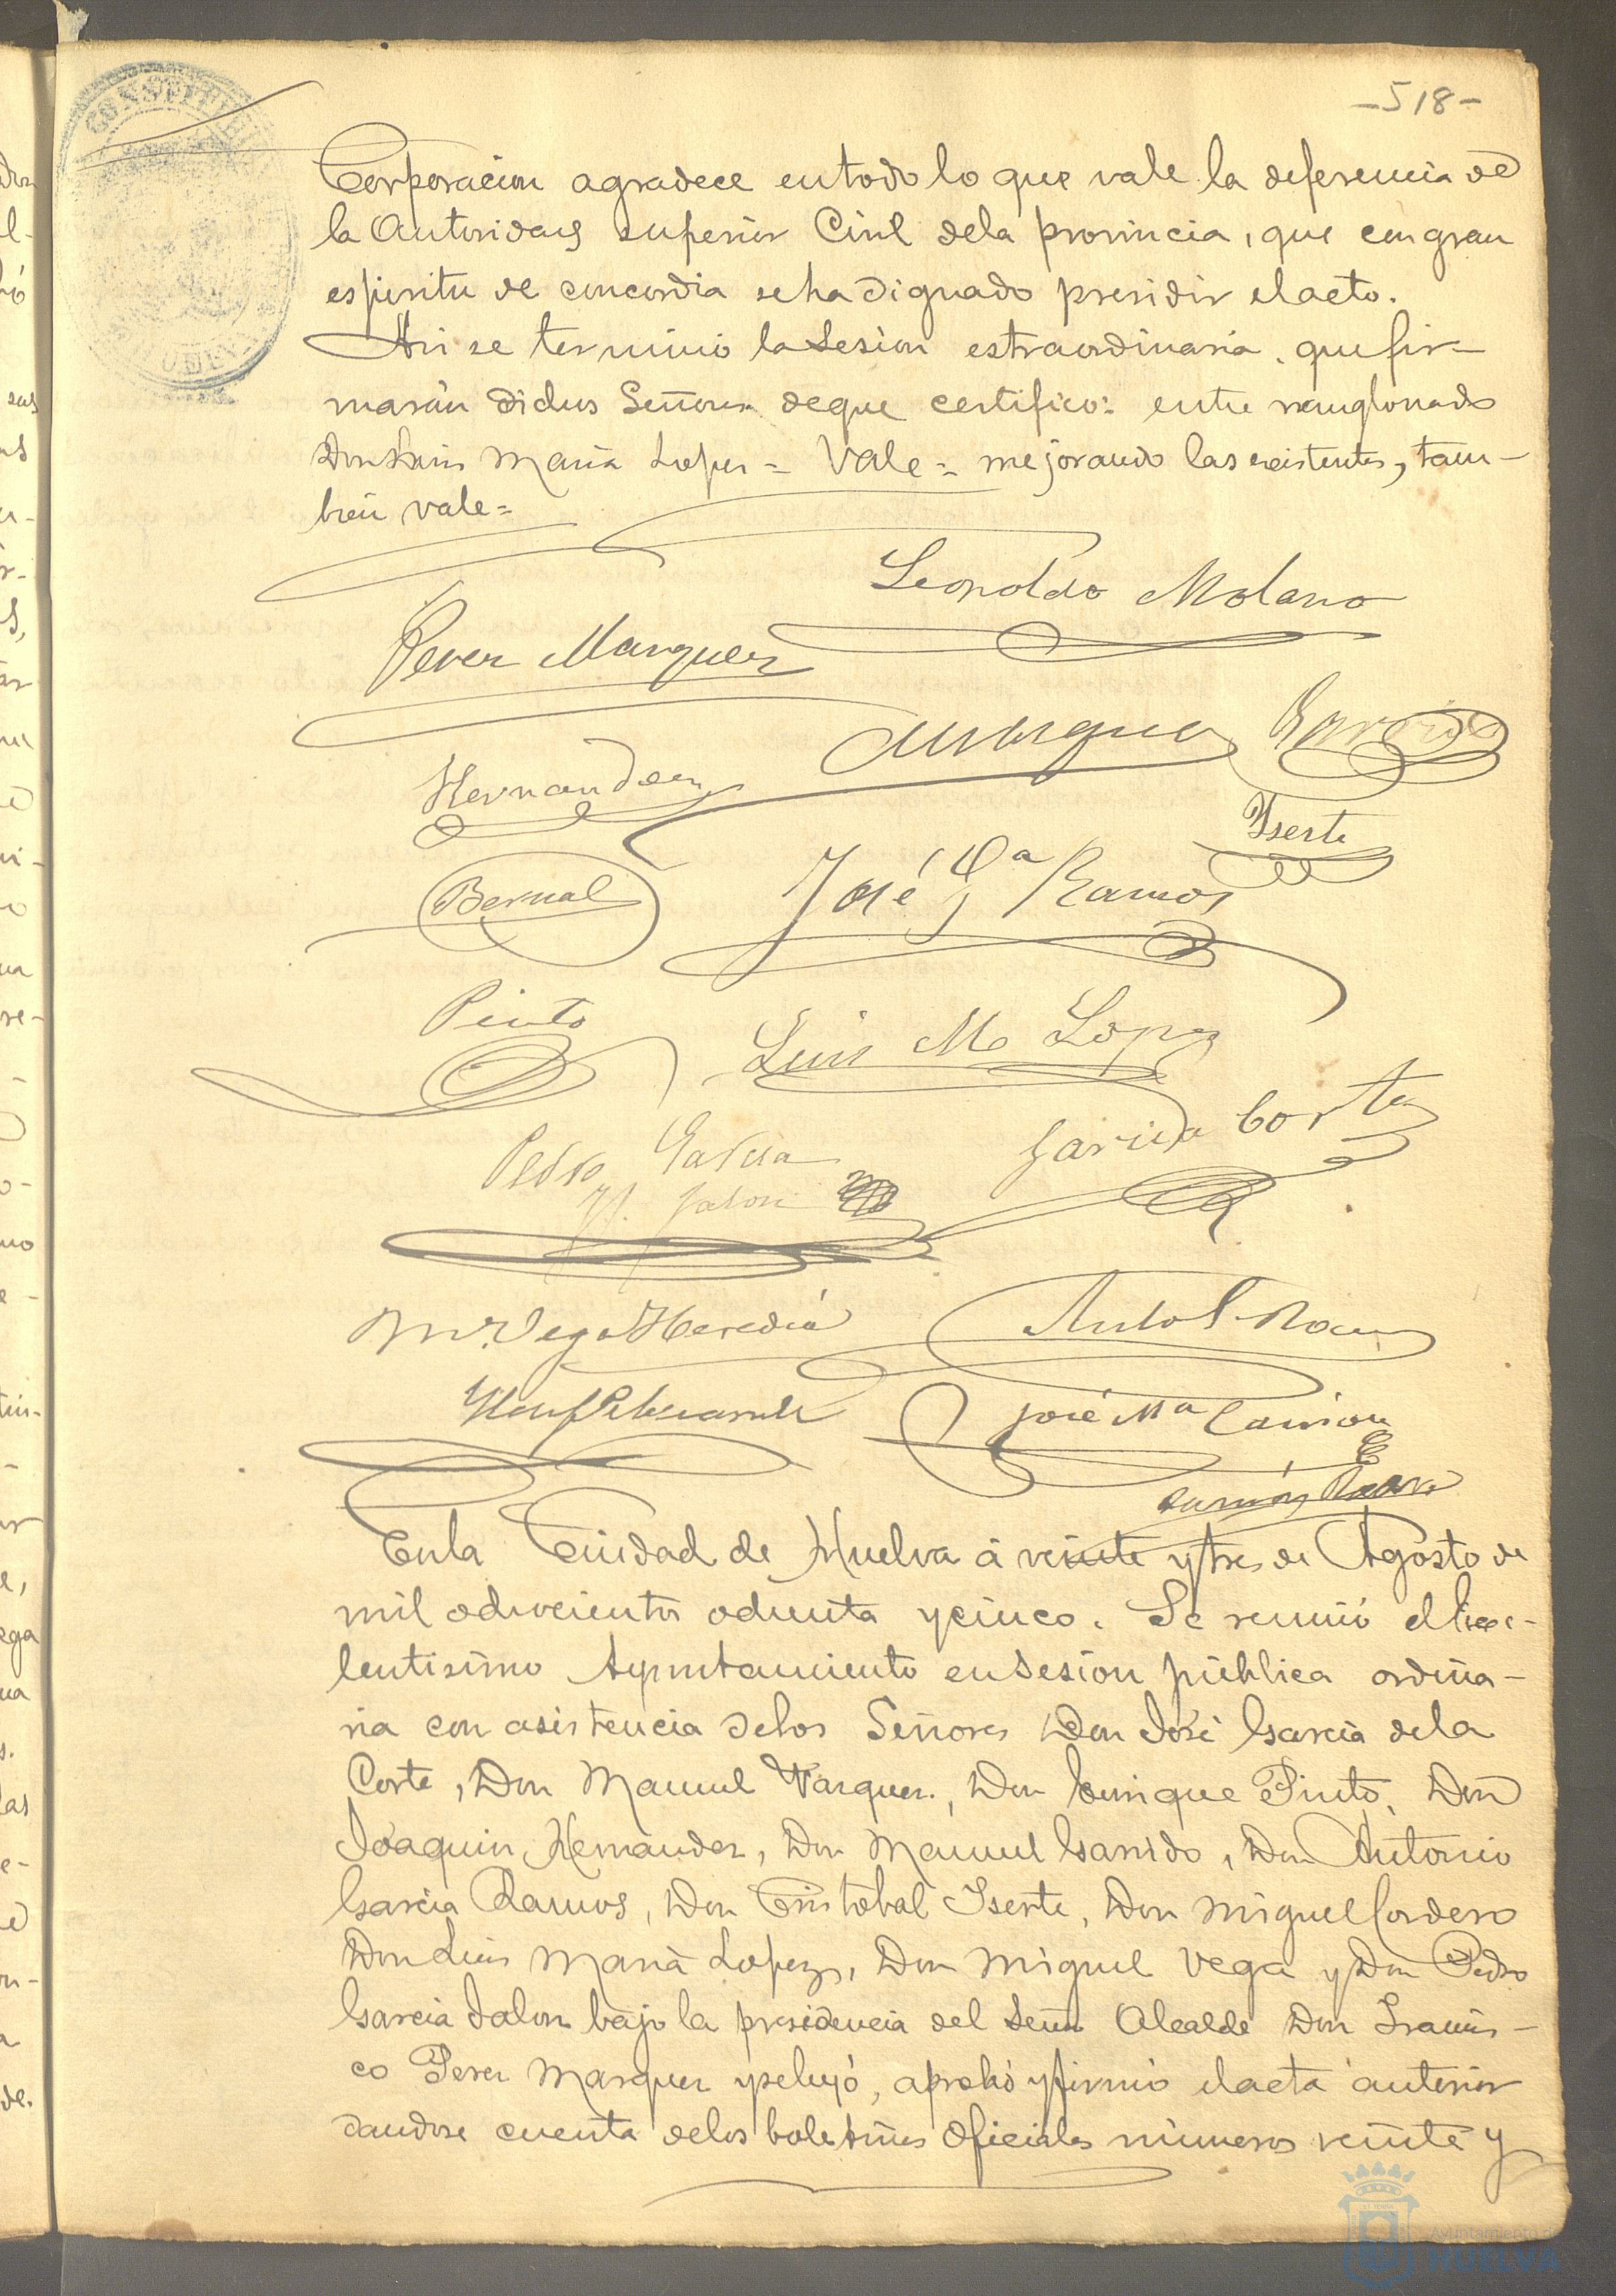 -518-
Corporacion agradece en todo lo que vale la deferencia de
la Autoridad superior Civil de la provincia, que con gran
espiritu de concordia se ha dignado presidir el acto.
Asi se terminó la Sesion estraordinaria, que fir-
marán dichos Señores de que certifico: entre renglonado
Don Luis Maria Lopez = Vale = mejorando las existentes, tam-
bien vale =
Leopoldo Molano
Perez Marquez
Vazquez Garrido
Hernandez
Iserte
Bernal José Gª Ramos
Pinto Luis Mª Lopez
Pedro Garcia Garcia Corte
y Jalon
M. Vega Heredia
José Mª Carrion
En la Ciudad de Huelva á veinte y tres de Agosto de
mil ochocientos ochenta y cinco. Se reunió el Exce-
lentisimo Ayuntamiento en Sesion pública ordina-
ria con asistencia de los Señores Don José Garcia de la
Corte, Don Manuel Vazquez, Don Enrique Pinto, Don
Joaquin Hernandez, Don Manuel Garrido, Don Antonio
Garcia Ramos, Don Cristobal Iserte, Don Miguel Cordero
Don Luis Maria Lopez, Don Miguel Vega y Don Pedro
Garcia Jalon bajo la presidencia del Señor Alcalde Don Francis-
co Perez Marquez y se leyó, aprobó y firmó el acta anterior
dandose cuenta de los boletines oficiales números veinte y
Ayuntamiento de
HUELVA